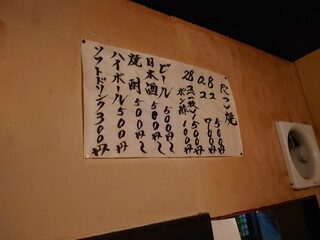 たこ焼
8コ 500円
ポン酢
ビール 500円〜
日本酒 500円〜
焼酎 500円〜
ハイボール 500円〜
ソフトドリンク 300円